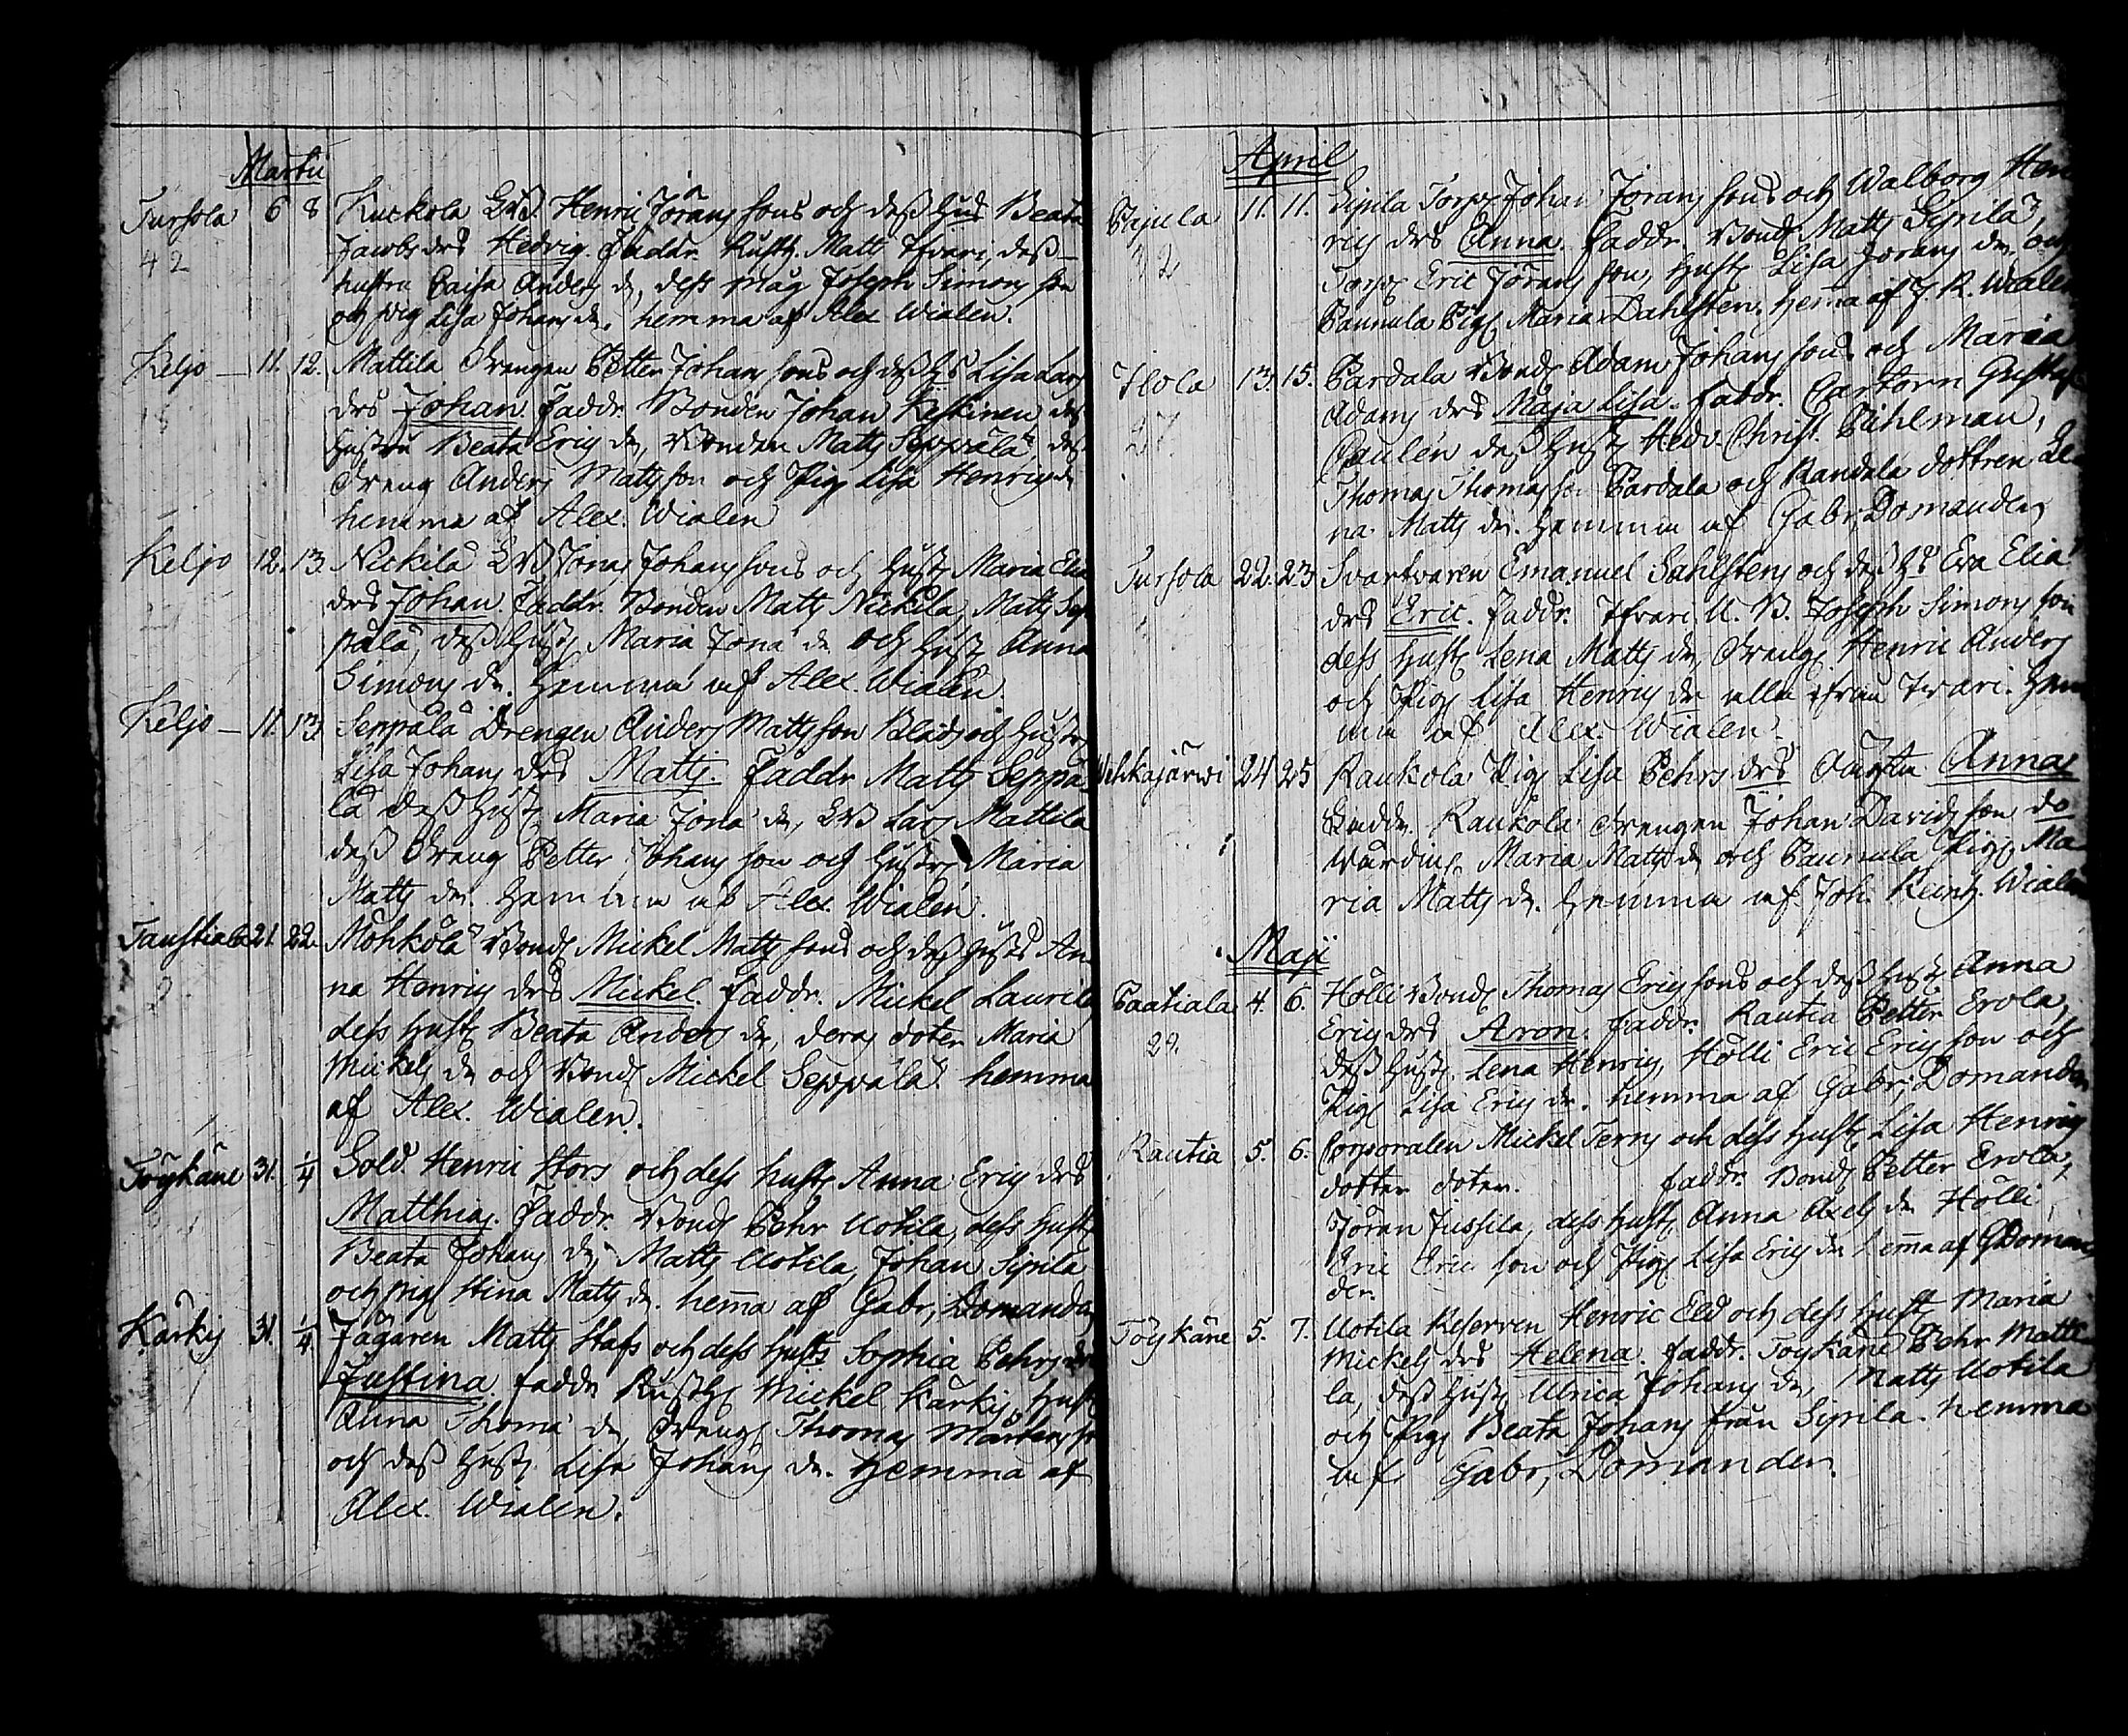 Martii
Tursola 6 8 Kuckola LB. Henric Jörans sons och dess Hus Beata
42 Jacobs drs Hedvig. Faddr. Rusth. Matts Ifvari, dess
hustru Caisa Anders dr, dess måg Joseph Simons son
och pig Lisa Johans dr. hemma af Alex Wialen.
Keljo — 11. 12. Mattila Drengen Petter Johans sons och dess Hs Lisa Lars
18 drs Johan. Faddr. Bonden Johan Keskinen dess
Hustru Beata Erics dr, Bonden Matts Seppälä, dess
Dreng Anders Matts son och Pig Lisa Henrics dr
hemma af Alex. Wialen
Keljo 12. 13 Nickilä LB Jonas Johans sons och Hust Maria Elia
drs Johan. Faddr. Bonden Matts Nickila, Matts Sep
pälä, dess Hust Maria Jona dr och Hust Anna
Simons dr. Hemma af Alex. Wialén
Keljo — 11. 13 Seppälä Drengen Anders Matts son Blads och Hustr
Lisa Johans drs Matts. Faddr. Matts Seppä-
lä dess Hust Maria Jona dr, LB Lars Mattila
dess Dreng Petter Johans son och Hustr Maria
Matts dr. Hemma af Alex. Wialén.
Taustiala 21. 22. Mohkola Bond Mickel Matts sons och dess Hustrs An
2 na Henrics drs Mickel. Faddr. Mickel Laurila
dess Hust Beata Anders dr, deras doter Maria
Mickels dr och Bond Mickel Seppälä. hemma
af Alex. Wialen.
Töykäne 31. 1/4 Sold. Henric Stors och dess Hust Anna Erics drs
Matthias. Faddr. Bond Pehr Uotila, dess Hust
Beata Johans dr, Matts Uotila, Johan Sipila
och pig Stina Matts dr. hema af Gabr, Domander
Kärky 31. 1/4 Jägaren Matts Stafs och dess Husts Sophia Pehrs drs
Justina. Faddr Rusth Mickel Kärky, Hust
Anna Thoma dr, Dreng Thomas Mårtens son
och dess Hust Lisa Johans dr. Hemma af
Alex. Wialen.
April
Pajula 11. 11. Sipila Torp Johan Jörans sons och Walborg Hen
rics drs Anna. Faddr. Bond Matts Sipila,
Torp Eric Jörans son, Hust Lisa Jorans dr, och
Paunula Pig Maria Dahlsten. Hema af J. R. Wialen
Ilola 13. 15. Pardala Bond Adam Johans sons och Maria
27 Adams drs Maja Lisa. Faddr. Pastorn Gustaf
Paulén dess Hust Hedv. Christ. Pihlman,
Thomas Thomas son Pardala och Kandala dottren Le
na Matts dr. Hemma af Gabr, Domander
Tursola 22. 23 Svartvaren Emanuel Sahlstens och dess Hs Eva Elia
drs Eric. Faddr. Ifvari U. B. Joseph Simons son
dess Hust Lena Matts dr, Dreng Henric Anders
och Pig Lisa Henrics dr alla ifrån Ivari. Hem
ma af Alex. Wialen.
Wehkajärwi 24 25 Raukola Pig Lisa Pehrs drs Oägta Anna
Faddr. Raukola Drengen Johan Davids son do
Wärdin Maria Matts dr och Paunula Pig Ma
ria Matts dr. Hemma af Joh. Reinh. Wialén
Maji
Paatiala 4. 6. Hölli Bond Thomas Erics sons och dess Hust Anna
29. Erics drs Aron. Faddr. Rautia Petter Erola,
dess Hust. Lena Henrics, Hölli Eric Erics son och
Pig Lisa Erics dr. hemma af Gabr, Domander
Rautia 5. 6. Corporalen Mickel Terns och dess Hust Lisa Henrics
dotter doter. Faddr. Bond Petter Erola,
Jöran Jussila, dess Hust Anna Axels dr Hölli
Eric Erics son och Pig Lisa Erics dr hema af G Doman
der.
Töykäne 5. 7. Uotila Reserven Henric Eld och dess Hust Maria
Mickels drs Helena. Faddr. Töykäne Pehr Matti
la, dess Hust Ulrica Johans dr, Matts Uotila
och Pig Beata Johans från Sipila. hemma
af Gabr, Domander.